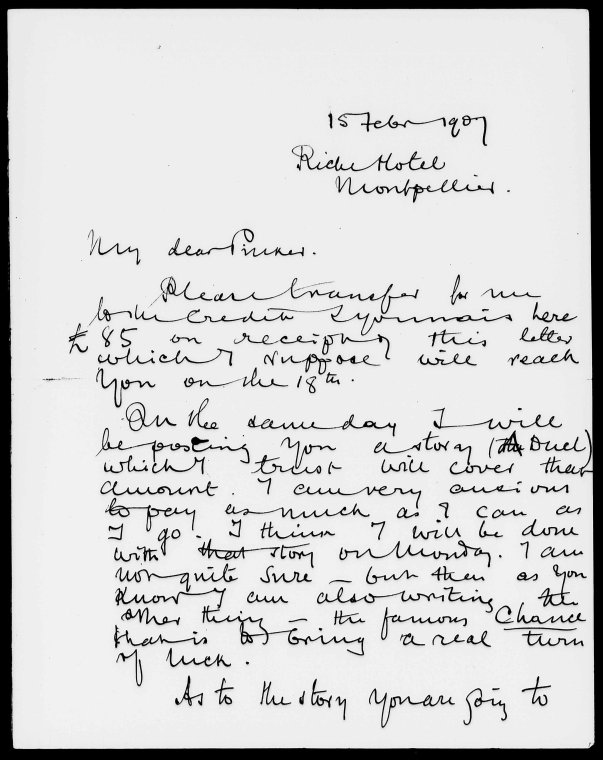 15 Febr 1907
Riche Hotel
Montpellier.
My dear Pinker.
Please transfer for me
to the Credit Lyonnais here
£ 85 on receipt of this letter
which I suppose will reach
you on the 18th.
On the same day I will
be posting you a story (A Duel)
which I trust will cover that
amount. I am very anxious
to pay as much as I can as
I go. I think I will be done
with that story on Monday. I am
not quite sure – but then as you
know I am also writing the
other thing – the famous Chance
that is to bring a real turn
of luck.
As to the story you are going to